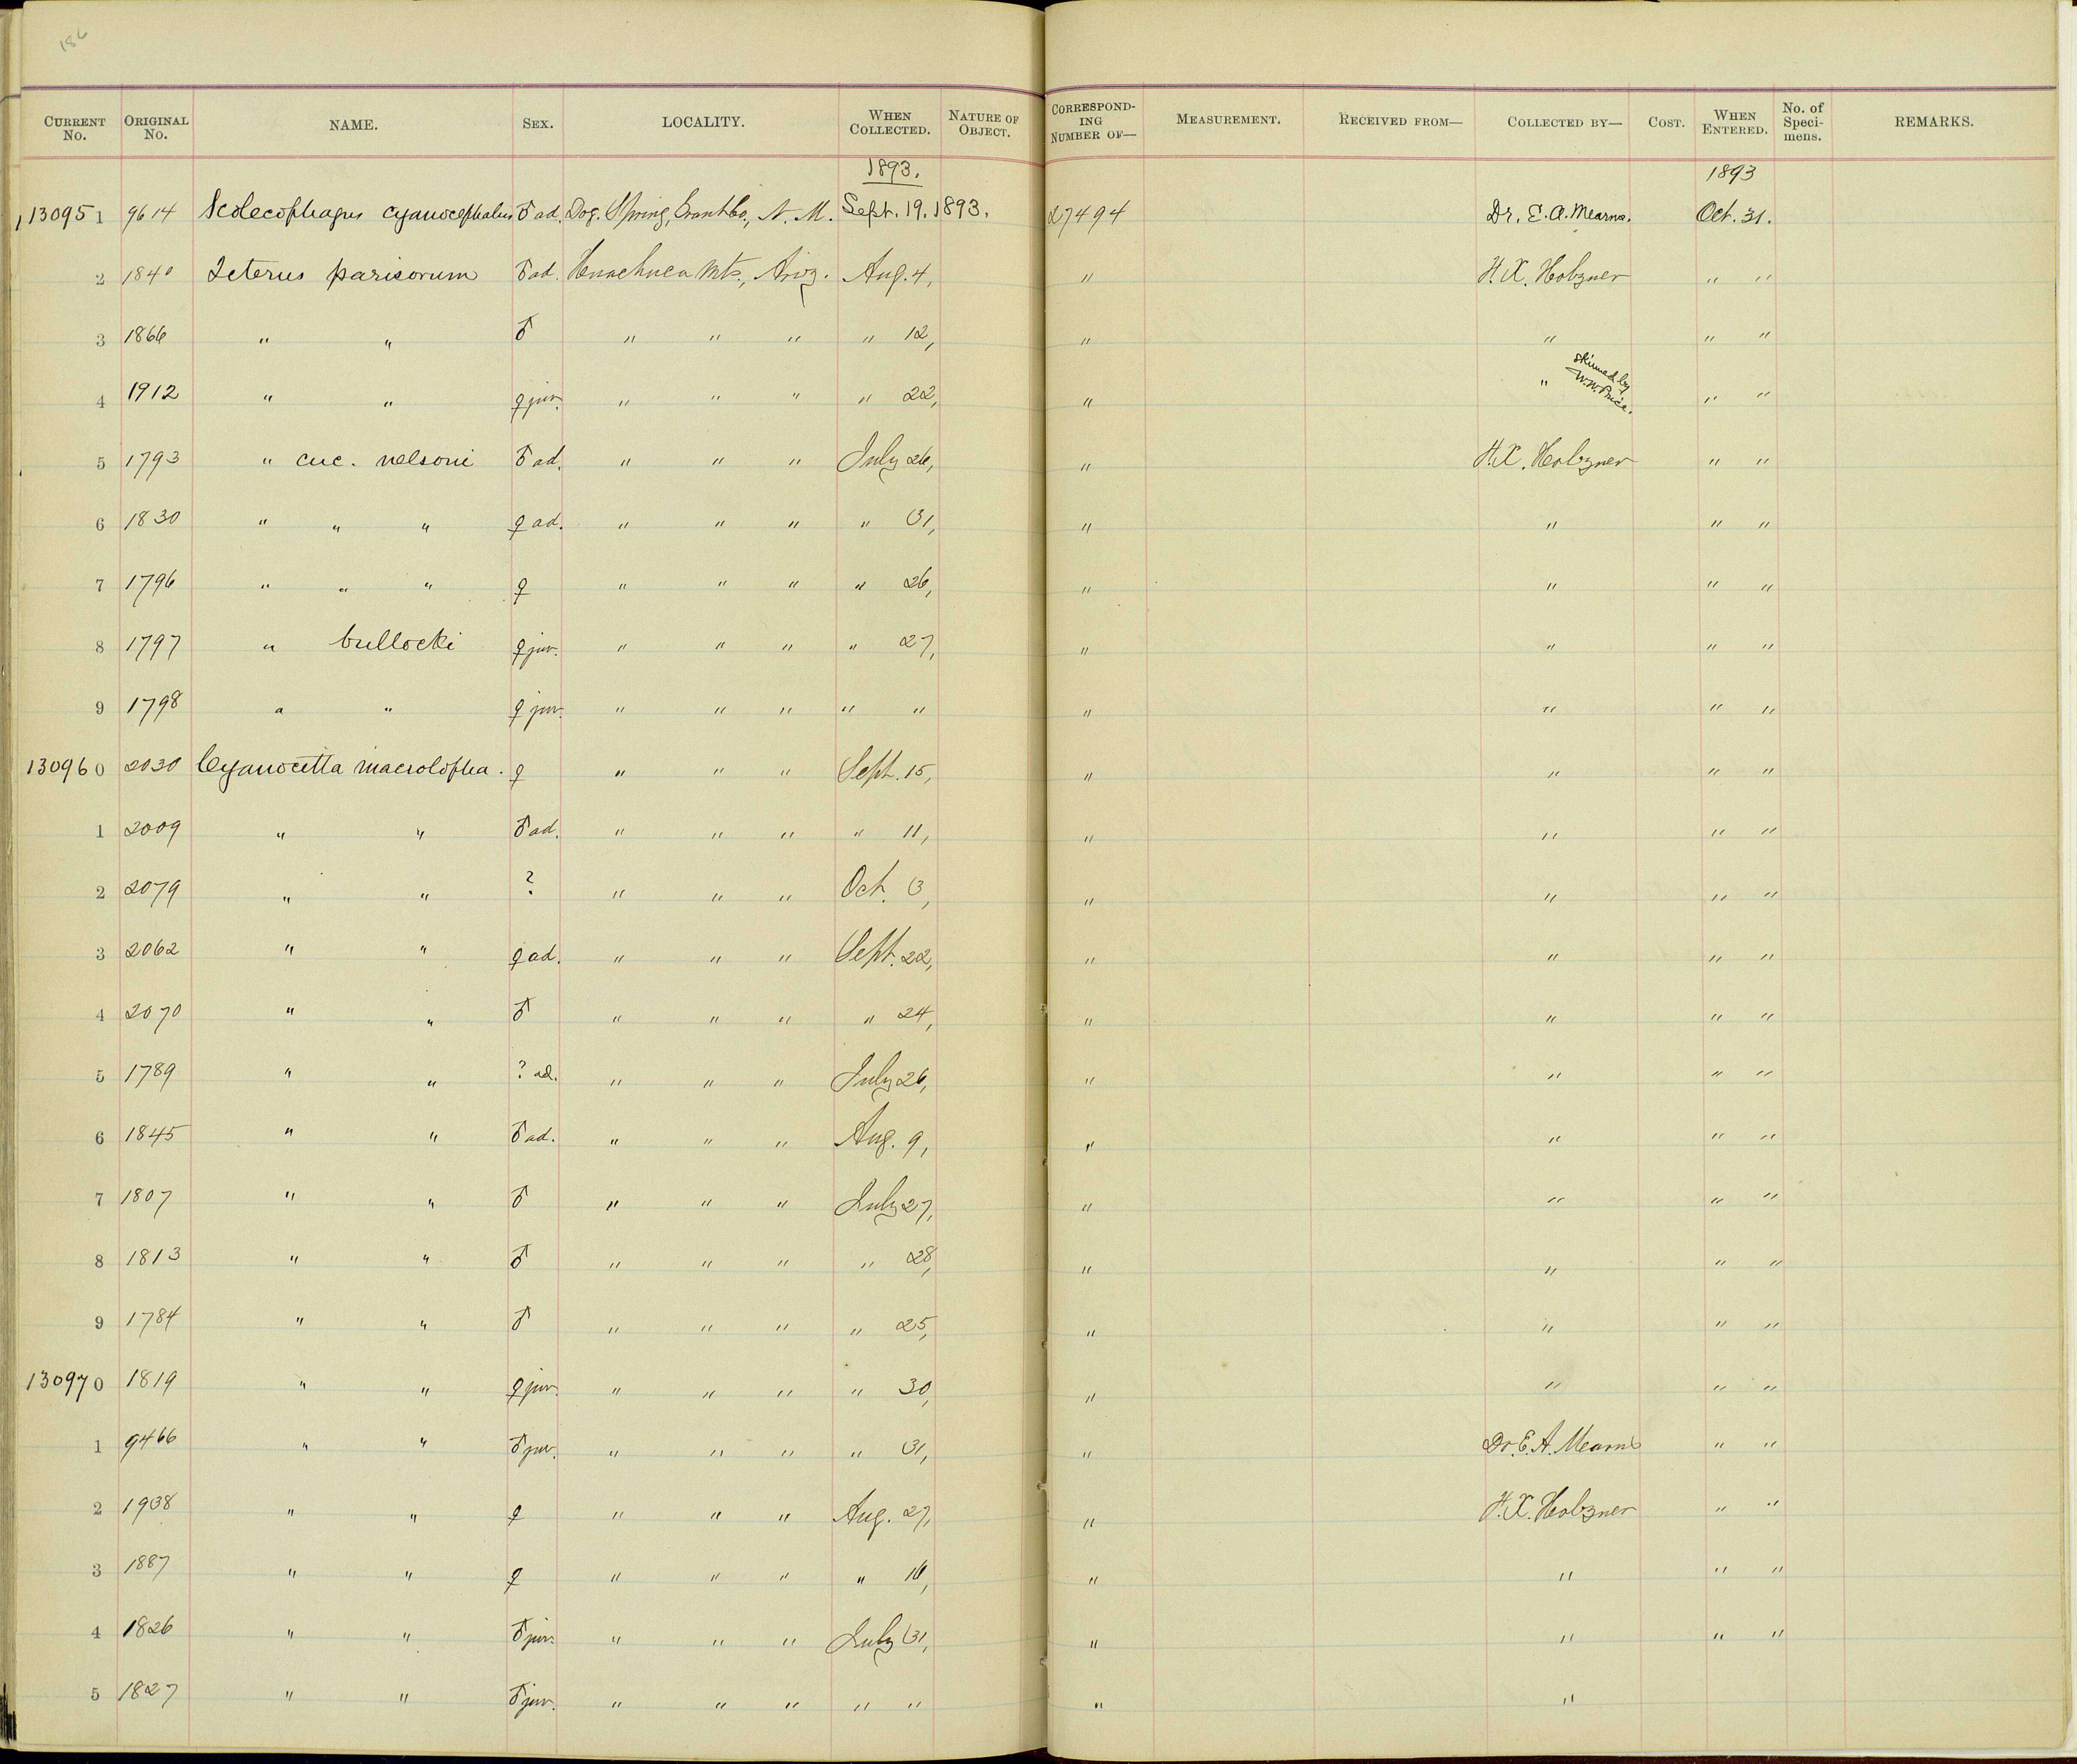 186
CURRENT No. ORIGINAL No. NAME. SEX. LOCALITY. WHEN COLLECTED. NATURE OF OBJECT. CORRESPONDING NUMBER OF— MEASUREMENT. RECEIVED FROM— COLLECTED BY— COST. WHEN ENTERED. No. of Specimens. REMARKS.
1893. 1893
130951 9614 Scolecophagus cyanocephalus ♂ ad. Dog Spring, Grant Co., N. M. Sept. 19. 1893. 27494 Dr. E. A. Mearns. Oct. 31.
2 1840 Icterus parisorum ♂ ad. Huachuca Mts., Ariz. Aug. 4, " H. X. Holzner " "
3 1866 " " ♂ " " " " 12, " " " "
4 1912 " " ♀ juv. " " " " 22, " " skinned by W. W. Price. " "
5 1793 " cuc. nelsoni ♂ ad. " " " July 26, " H. X. Holzner " "
6 1830 " " " ♀ ad. " " " " 31, " " " "
7 1796 " " " ♀ " " " " 26, " " " "
8 1797 " bullocki ♀ juv. " " " " 27, " " " "
9 1798 " " ♀ juv. " " " " " " " " "
130960 2030 Cyanocitta macrolopha. ♀ " " " Sept. 15, " " " "
1 2009 " " ♂ ad. " " " " 11, " " " "
2 2079 " " ? " " " Oct. 3, " " " "
3 2062 " " ♀ ad. " " " Sept. 22, " " " "
4 2070 " " ♂ " " " " 24, " " " "
5 1789 " " ? ad. " " " July 26, " " " "
6 1845 " " ♂ ad. " " " Aug. 9, " " " "
7 1807 " " ♂ " " " July 27, " " " "
8 1813 " " ♂ " " " " 28, " " " "
9 1784 " " ♂ " " " " 25, " " " "
130970 1819 " " ♀ juv. " " " " 30, " " " "
1 9466 " " ♂ juv. " " " " 31, " Dr. E. A. Mearns " "
2 1938 " " ♀ " " " Aug. 27, " H. X. Holzner " "
3 1887 " " ♀ " " " " " " " "
4 1826 " " ♂ juv. " " " July 31, " " " "
5 1827 " " ♂ juv. " " " " " " "